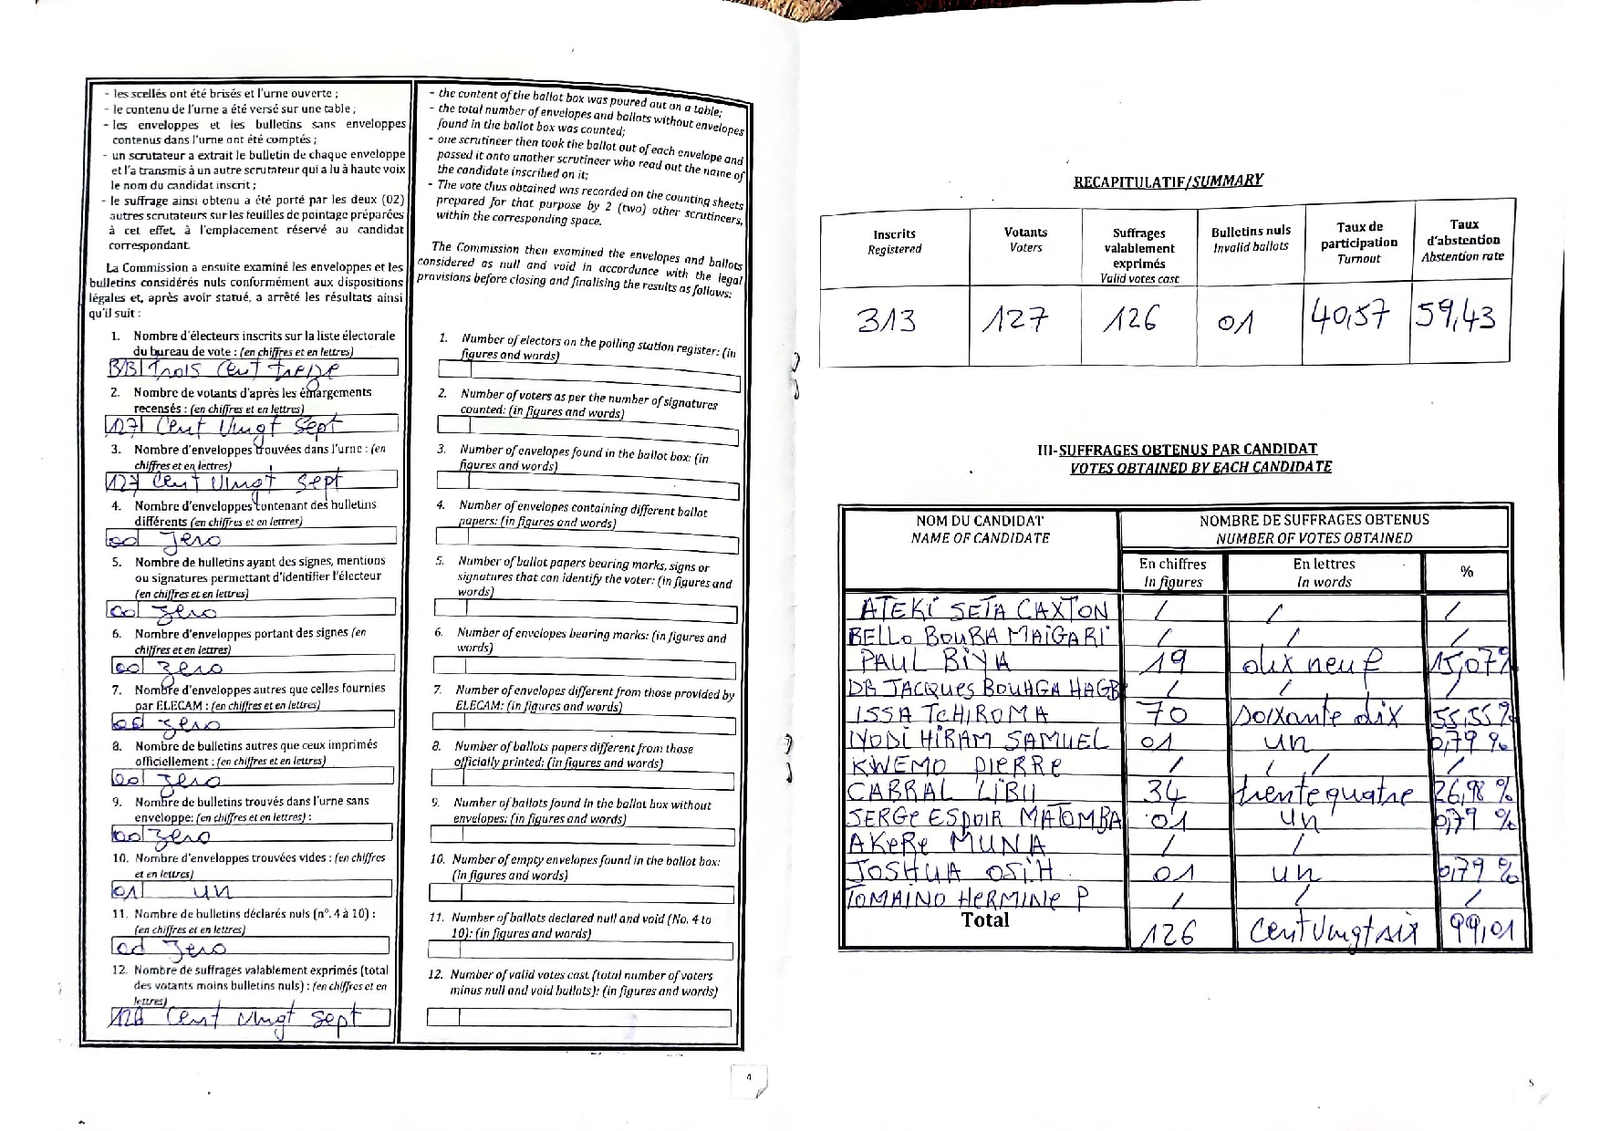 - les scellés ont été brisés et l'urne ouverte ;
- le contenu de l'urne a été versé sur une table ;
- les enveloppes et les bulletins sans enveloppes
contenus dans l'urne ont été comptés ;
- un scrutateur a extrait le bulletin de chaque enveloppe
et l'a transmis à un autre scrutateur qui a lu à haute voix
le nom du candidat inscrit ;
- le suffrage ainsi obtenu a été porté par les deux (02)
autres scrutateurs sur les feuilles de pointage préparées
à cet effet, à l'emplacement réservé au candidat
correspondant.
La Commission a ensuite examiné les enveloppes et les
bulletins considérés nuls conformément aux dispositions
légales et, après avoir statué, a arrêté les résultats ainsi
qu'il suit :
1. Nombre d'électeurs inscrits sur la liste électorale
du bureau de vote : (en chiffres et en lettres)
313 Trois Cent treize
2. Nombre de votants d'après les émargements
recensés : (en chiffres et en lettres)
127 Cent Vingt Sept
3. Nombre d'enveloppes trouvées dans l'urne : (en
chiffres et en lettres)
127 Cent Vingt Sept
4. Nombre d'enveloppes contenant des bulletins
différents (en chiffres et en lettres)
00 Zero
5. Nombre de bulletins ayant des signes, mentions
ou signatures permettant d'identifier l'électeur
(en chiffres et en lettres)
00 zero
6. Nombre d'enveloppes portant des signes (en
chiffres et en lettres)
00 zero
7. Nombre d'enveloppes autres que celles fournies
par ELECAM : (en chiffres et en lettres)
00 zero
8. Nombre de bulletins autres que ceux imprimés
officiellement : (en chiffres et en lettres)
00 zero
9. Nombre de bulletins trouvés dans l'urne sans
enveloppe: (en chiffres et en lettres) :
00 zero
10. Nombre d'enveloppes trouvées vides : (en chiffres
et en lettres)
01 un
11. Nombre de bulletins déclarés nuls (n°. 4 à 10) :
(en chiffres et en lettres)
00 zero
12. Nombre de suffrages valablement exprimés (total
des votants moins bulletins nuls) : (en chiffres et en
lettres)
Cent vingt sept
- the content of the ballot box was poured out on a table;
- the total number of envelopes and ballots without envelopes
found in the ballot box was counted;
- one scrutineer then took the ballot out of each envelope and
passed it onto another scrutineer who read out the name of
the candidate inscribed on it;
- The vote thus obtained was recorded on the counting sheets
prepared for that purpose by 2 (two) other scrutineers,
within the corresponding space.
The Commission then examined the envelopes and ballots
considered as null and void in accordance with the legal
provisions before closing and finalising the results as follows:
1. Number of electors on the polling station register: (in
figures and words)
2. Number of voters as per the number of signatures
counted: (in figures and words)
3. Number of envelopes found in the ballot box: (in
figures and words)
4. Number of envelopes containing different ballot
papers: (in figures and words)
5. Number of ballot papers bearing marks, signs or
signatures that can identify the voter: (in figures and
words)
6. Number of envelopes bearing marks: (in figures and
words)
7. Number of envelopes different from those provided by
ELECAM: (in figures and words)
8. Number of ballots papers different from those
officially printed: (in figures and words)
9. Number of ballots found in the ballot box without
envelopes: (in figures and words)
10. Number of empty envelopes found in the ballot box:
(in figures and words)
11. Number of ballots declared null and void (No. 4 to
10): (in figures and words)
12. Number of valid votes cast (total number of voters
minus null and void ballots): (in figures and words)
4
RECAPITULATIF/SUMMARY
Inscrits Registered
Votants Voters
Suffrages valablement exprimés Valid votes cast
Bulletins nuls Invalid ballots
Taux de participation Turnout
Taux d'abstention Abstention rate
313 127 126 01 40,57 59,43
III-SUFFRAGES OBTENUS PAR CANDIDAT
VOTES OBTAINED BY EACH CANDIDATE
NOM DU CANDIDAT
NAME OF CANDIDATE
NOMBRE DE SUFFRAGES OBTENUS
NUMBER OF VOTES OBTAINED
En chiffres
In figures
En lettres
In words
%
ATEKI SETA CAXTON / / /
BELLO BOUBA MAIGARI / / /
PAUL BIYA 19 dix neuf 15,07%
DR JACQUES BOUHGA HAGB / / /
ISSA TCHIROMA 70 soixante dix 55,55%
IYODI HIRAM SAMUEL 01 un 0,79 %
KWEMO PIERRE / / / /
CABRAL LIBII 34 trente quatre 26,98 %
SERGE ESPOIR MATOMBA 01 un 0,79 %
AKERE MUNA / /
JOSHUA OSIH 01 un 0,79 %
TOMAINO HERMINE P / / /
Total 126 Cent vingt six 99,01
5